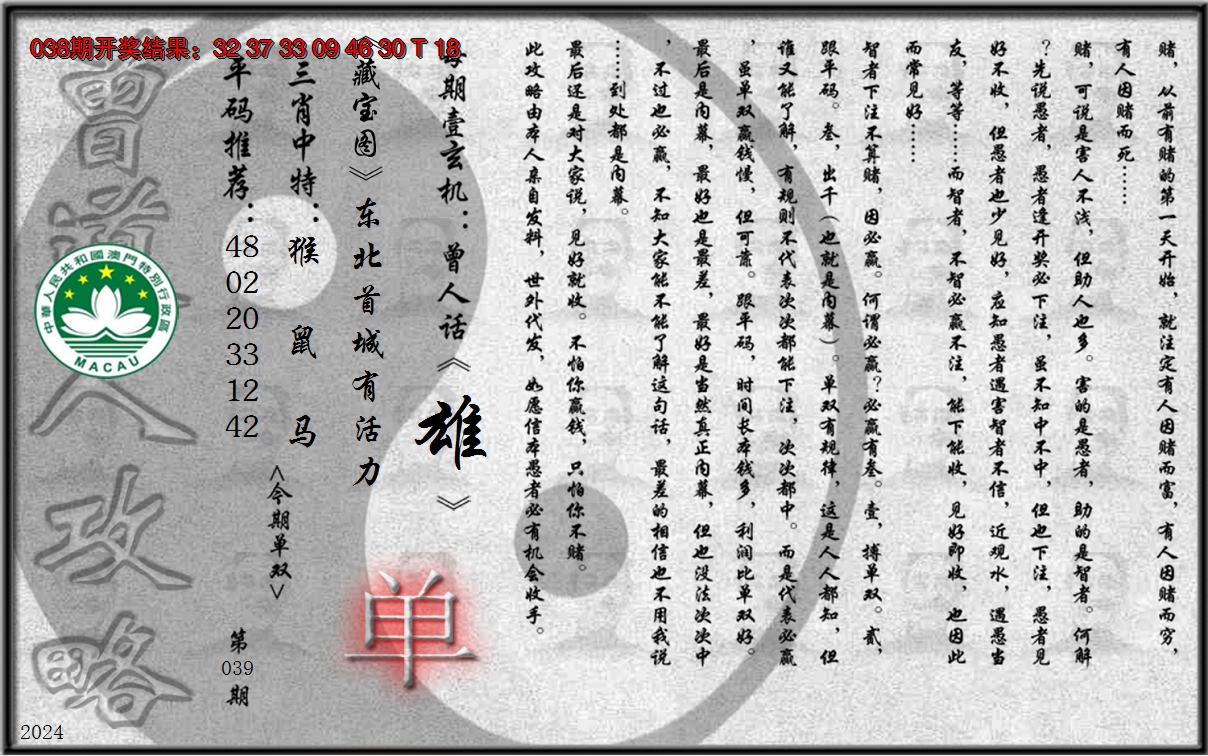 038期开奖结果：32 37 33 09 46 30 T 18
赌，从前有赌的第一天开始，就注定有人因赌而富，有人因赌而穷，
有人因赌而死……
赌，可说是害人不浅，但助人也多。害的是愚者，助的是智者。何解
？先说愚者，愚者逢开奖必下注，虽不知中不中，但也下注，愚者见
好不收，但愚者也少见好，应知愚者遇害智者不信，近观水，遇愚当
友，等等……而智者，不智必赢不注，能下能收，见好即收，也因此
而常见好……
智者下注不算赌，因必赢。何谓必赢？必赢有叁。壹，搏单双。贰，
跟平码。叁，出千（也就是内幕）。单双有规律，这是人人都知，但
谁又能了解，有规则不代表次次都能下注，次次都中。而是代表必赢
，虽单双赢钱慢，但可靠。跟平码，时间长本钱多，利润比单双好。
最后是内幕，最好也是最差，最好是当然真正内幕，但也没法次次中
，不过也必赢，不知大家能不能了解这句话，最差的相信也不用我说
……到处都是内幕。
最后还是对大家说，见好就收。不怕你赢钱，只怕你不赌。
此攻略由本人亲自发料，世外代发，如愿信本愚者必有机会收手。
每期壹玄机：曾人话《雄》
《藏宝图》东北首城有活力
三肖中特：猴 鼠 马
平码推荐：48 02 20 33 12 42
<今期单双>
单
第039期
曾道人攻略
中華人民共和國澳門特別行政區
MACAU
2024